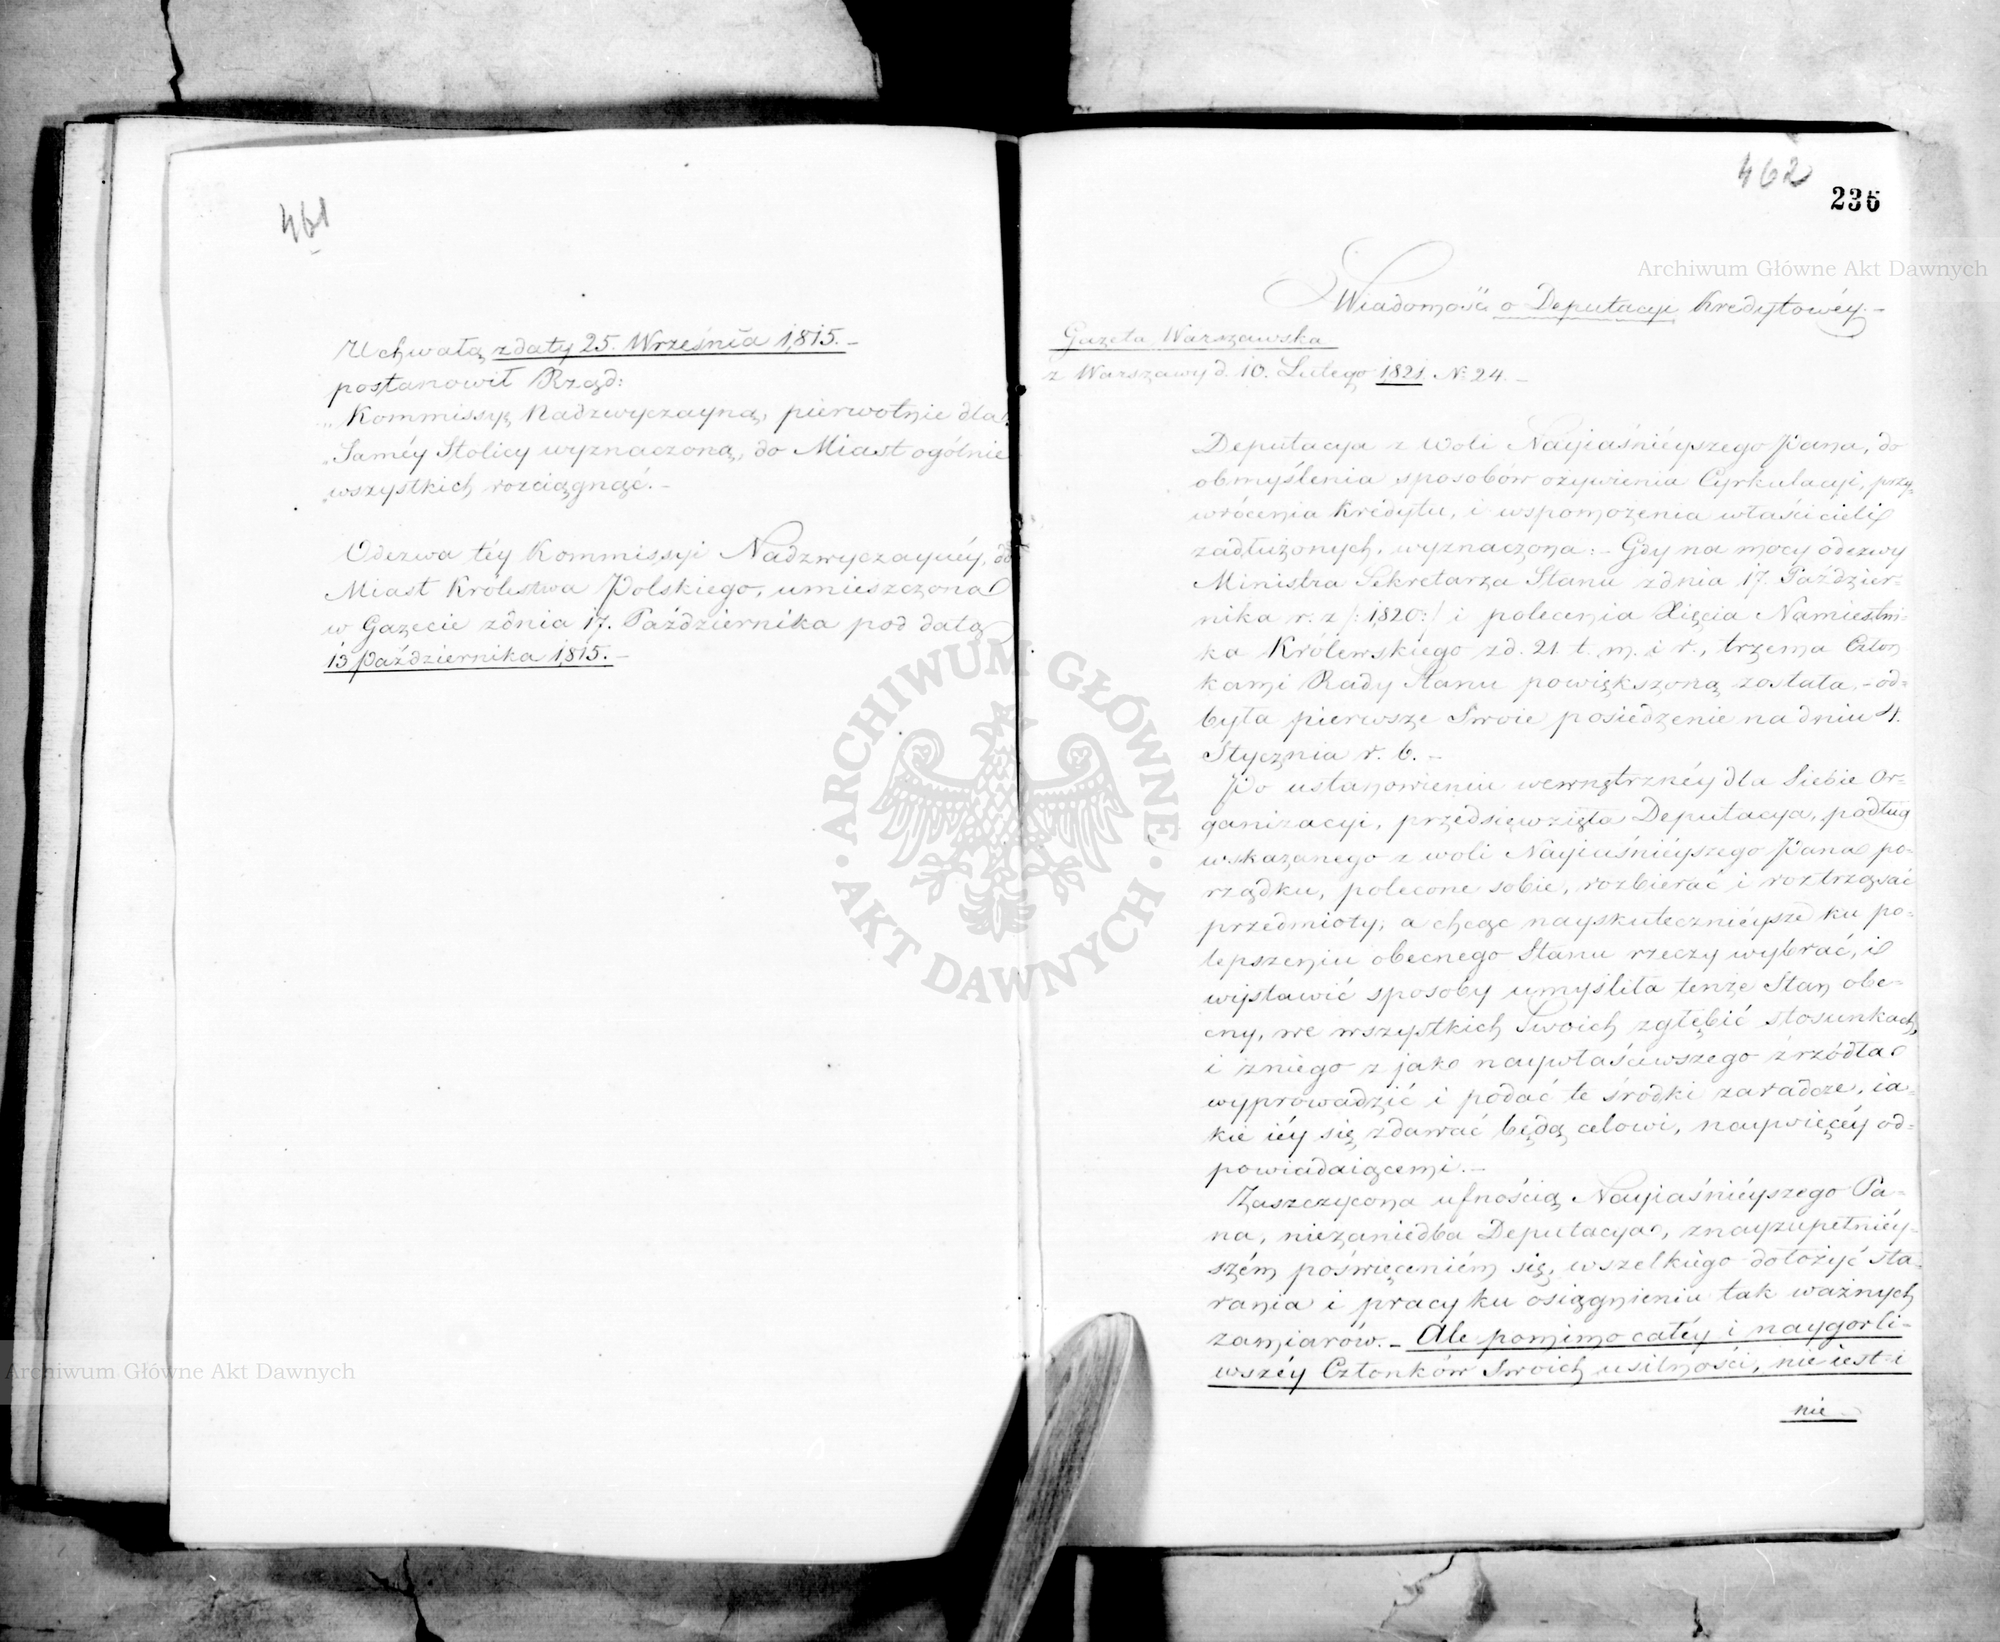 461
Uchwałą z daty 25. Września 1,815. –
postanowił Rząd:
„Kommissyę Nadzwyczayną, pierwotnie dla
„Saméy Stolicy wyznaczoną, do Miast ogólnie
„wszystkich rozciągnąć. –
Odezwa téy Kommissyi Nadzwyczaynéy, do
Miast Królestwa Polskiego, umieszczona
w Gazecie z dnia 17. Października pod datą
13 Października 1,815. –
462
236
Wiadomość o Deputacyi Kredytowéy. –
Gazeta Warszawska
z Warszawy d. 10. Lutego 1821 N. 24. –
Deputacya z woli Nayiaśniéyszego Pana, do
obmyślenia sposobów ożywienia Cyrkulacyi, przy-
wrócenia Kredytu, i wspomożenia właścicieli
zadłużonych, wyznaczona: – Gdy na mocy odezwy
Ministra Sekretarza Stanu z dnia 17. Paździer-
nika r. z /: 1,820: / i polecenia Xięcia Namiestni-
ka Królewskiego z d. 21. t. m. i r., trzema Człon
kami Rady Stanu powiększoną została, – od-
była pierwsze Swoie posiedzenie na dniu 4.
Stycznia r. b. –
Po ustanowieniu wewnętrznéy dla Siebie Or-
ganizacyi, przedsięwzięła Deputacya, podług
wskazanego z woli Nayiaśniéyszego Pana po-
rządku, polecone sobie, rozbierać i roztrząsać
przedmioty; a chcąc nayskutecznieysze ku po-
lepszeniu obecnego Stanu rzeczy wybrać, i
wystawić sposoby umyśliła tenże Stan obe-
cny, we wszystkich Swoich zgłębić stosunkach,
i z niego z jako naywłaściwszego źrzódła
wyprowadzić i podać te środki zaradcze, ia-
kie iéy się zdawać będą celowi, naywięcéy od-
powiadaiącemi. –
Zaszczycona ufnością Nayiaśniéyszego Pa-
na, niezaniedba Deputacya, z nayzupełniéy-
szém poświęceniém się, wszelkiego dołożyć sta-
rania i pracy ku osiągnieniu tak ważnych
zamiarów. – Ale pomimo całéy i naygorli-
wszéy Członków Swoich usilności, nie iest i
nie
Archiwum Główne Akt Dawnych
Archiwum Główne Akt Dawnych
ARCHIWUM GŁÓWNE
AKT DAWNYCH